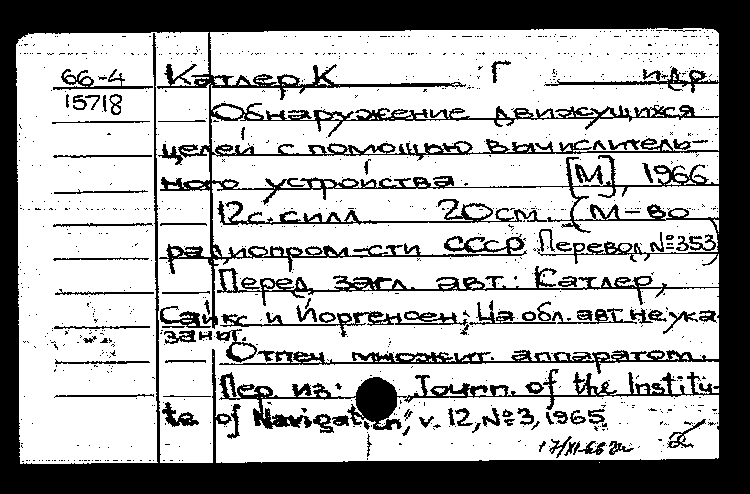 66-4
15718
Катлер, К Г идр
Обнаружение движущихся
целей с помощью вычислитель-
ного устройства. [М.], 1966.
12 с. с илл. 20 см. (М-во
радиопром-сти СССР Перевод, № 353)
Перед. загл. авт.: Катлер,
Сайкс и Йоргенсен; На обл. авт. не ука-
заны.
Отпеч. множит. аппаратом.
Пер. из: "Journ. of the Institu-
te of Navigation", v. 12, № 3, 1965